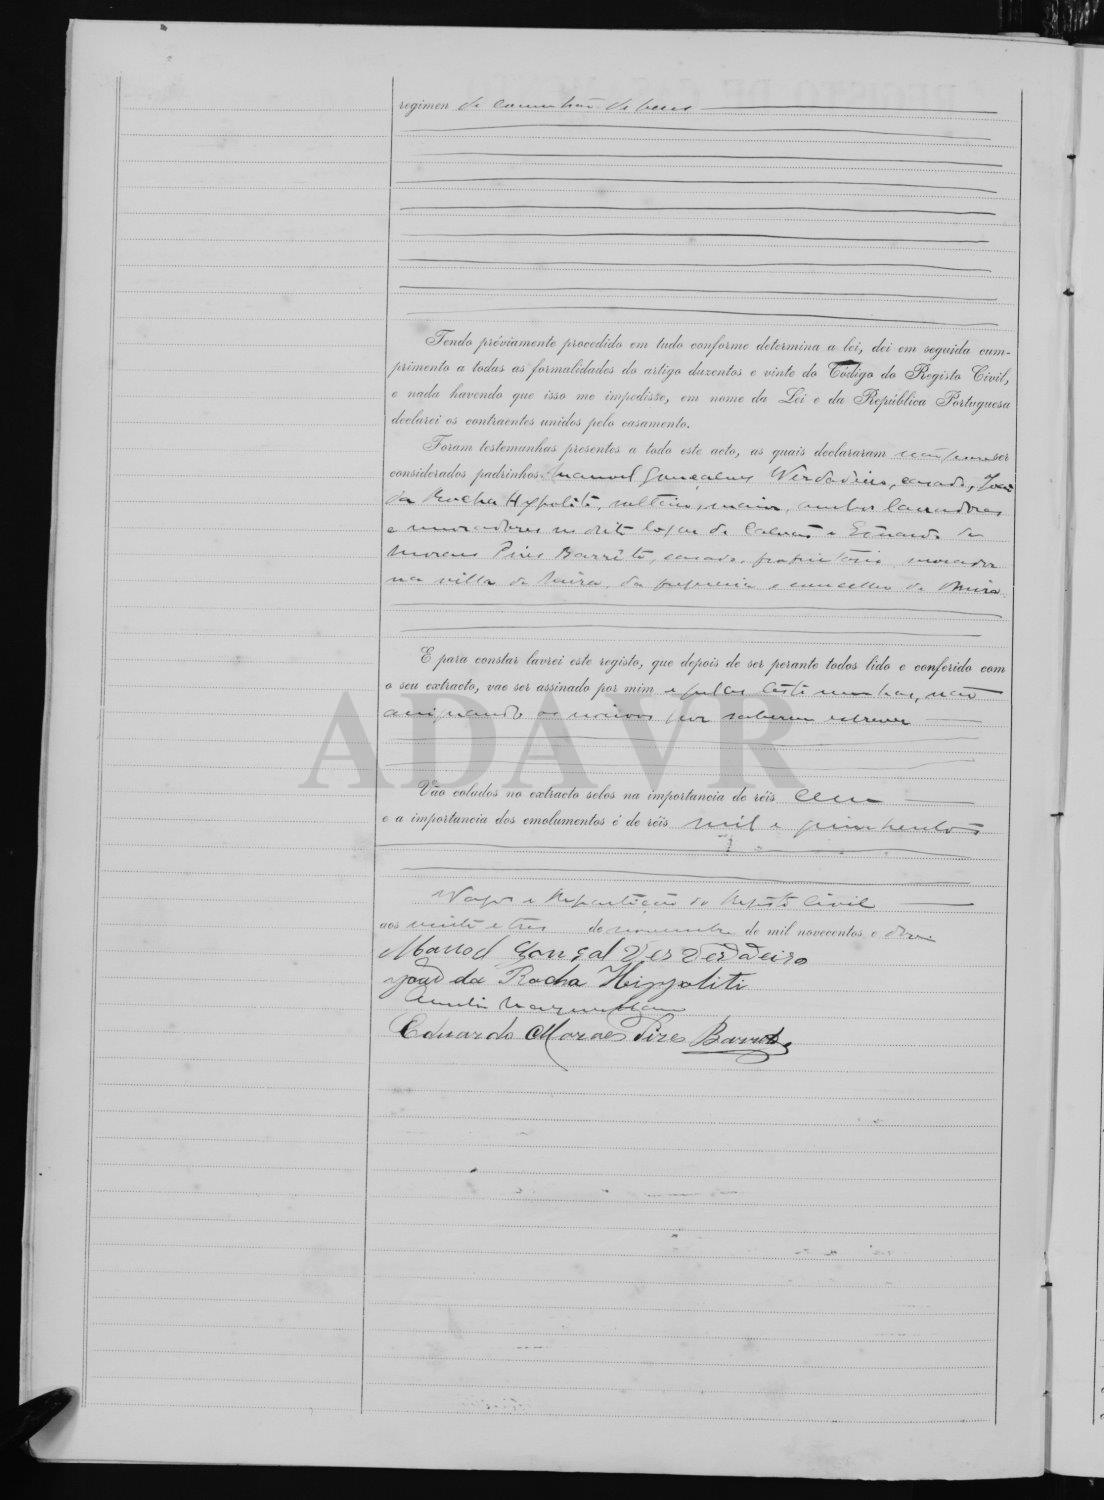 regimen de comunhão de bens
Tendo préviamente procedido em tudo conforme determina a lei, dei em seguida cum-
primento a todas as formalidades do artigo duzentos e vinte do Código do Registo Civil,
e nada havendo que isso me impedisse, em nome da Lei e da República Portuguesa
declarei os contraentes unidos pelo casamento.
Foram testemunhas presentes a todo este acto, as quais declararam ser
considerados padrinhos Manoel Gonçalves Verdadeiro, casado, João
da Rocha Hypolito, solteiro, maior, ambos lavradores
e moradores no dito logar de e Eduardo de
Moraes Pires Barreto, casado, proprietario, morador
na villa de Mira, da freguezia e concelho de Mira
E para constar lavrei este registo, que depois de ser perante todos lido e conferido com
o seu extracto, vae ser assinado por mim e pelas testemunhas, não
assignando os noivos por saberem escrever
ADAVR
Vão colados no extracto selos na importancia de réis cem
e a importancia dos emolumentos é de réis mil e quinhentos
Vagos e Repartição do Registo Civil
aos vinte e tres de novembro de mil novecentos e doze
Manoel Gonçalves Verdadeiro
João da Rocha Hippolito
Eduardo Moraes Pires Barreto